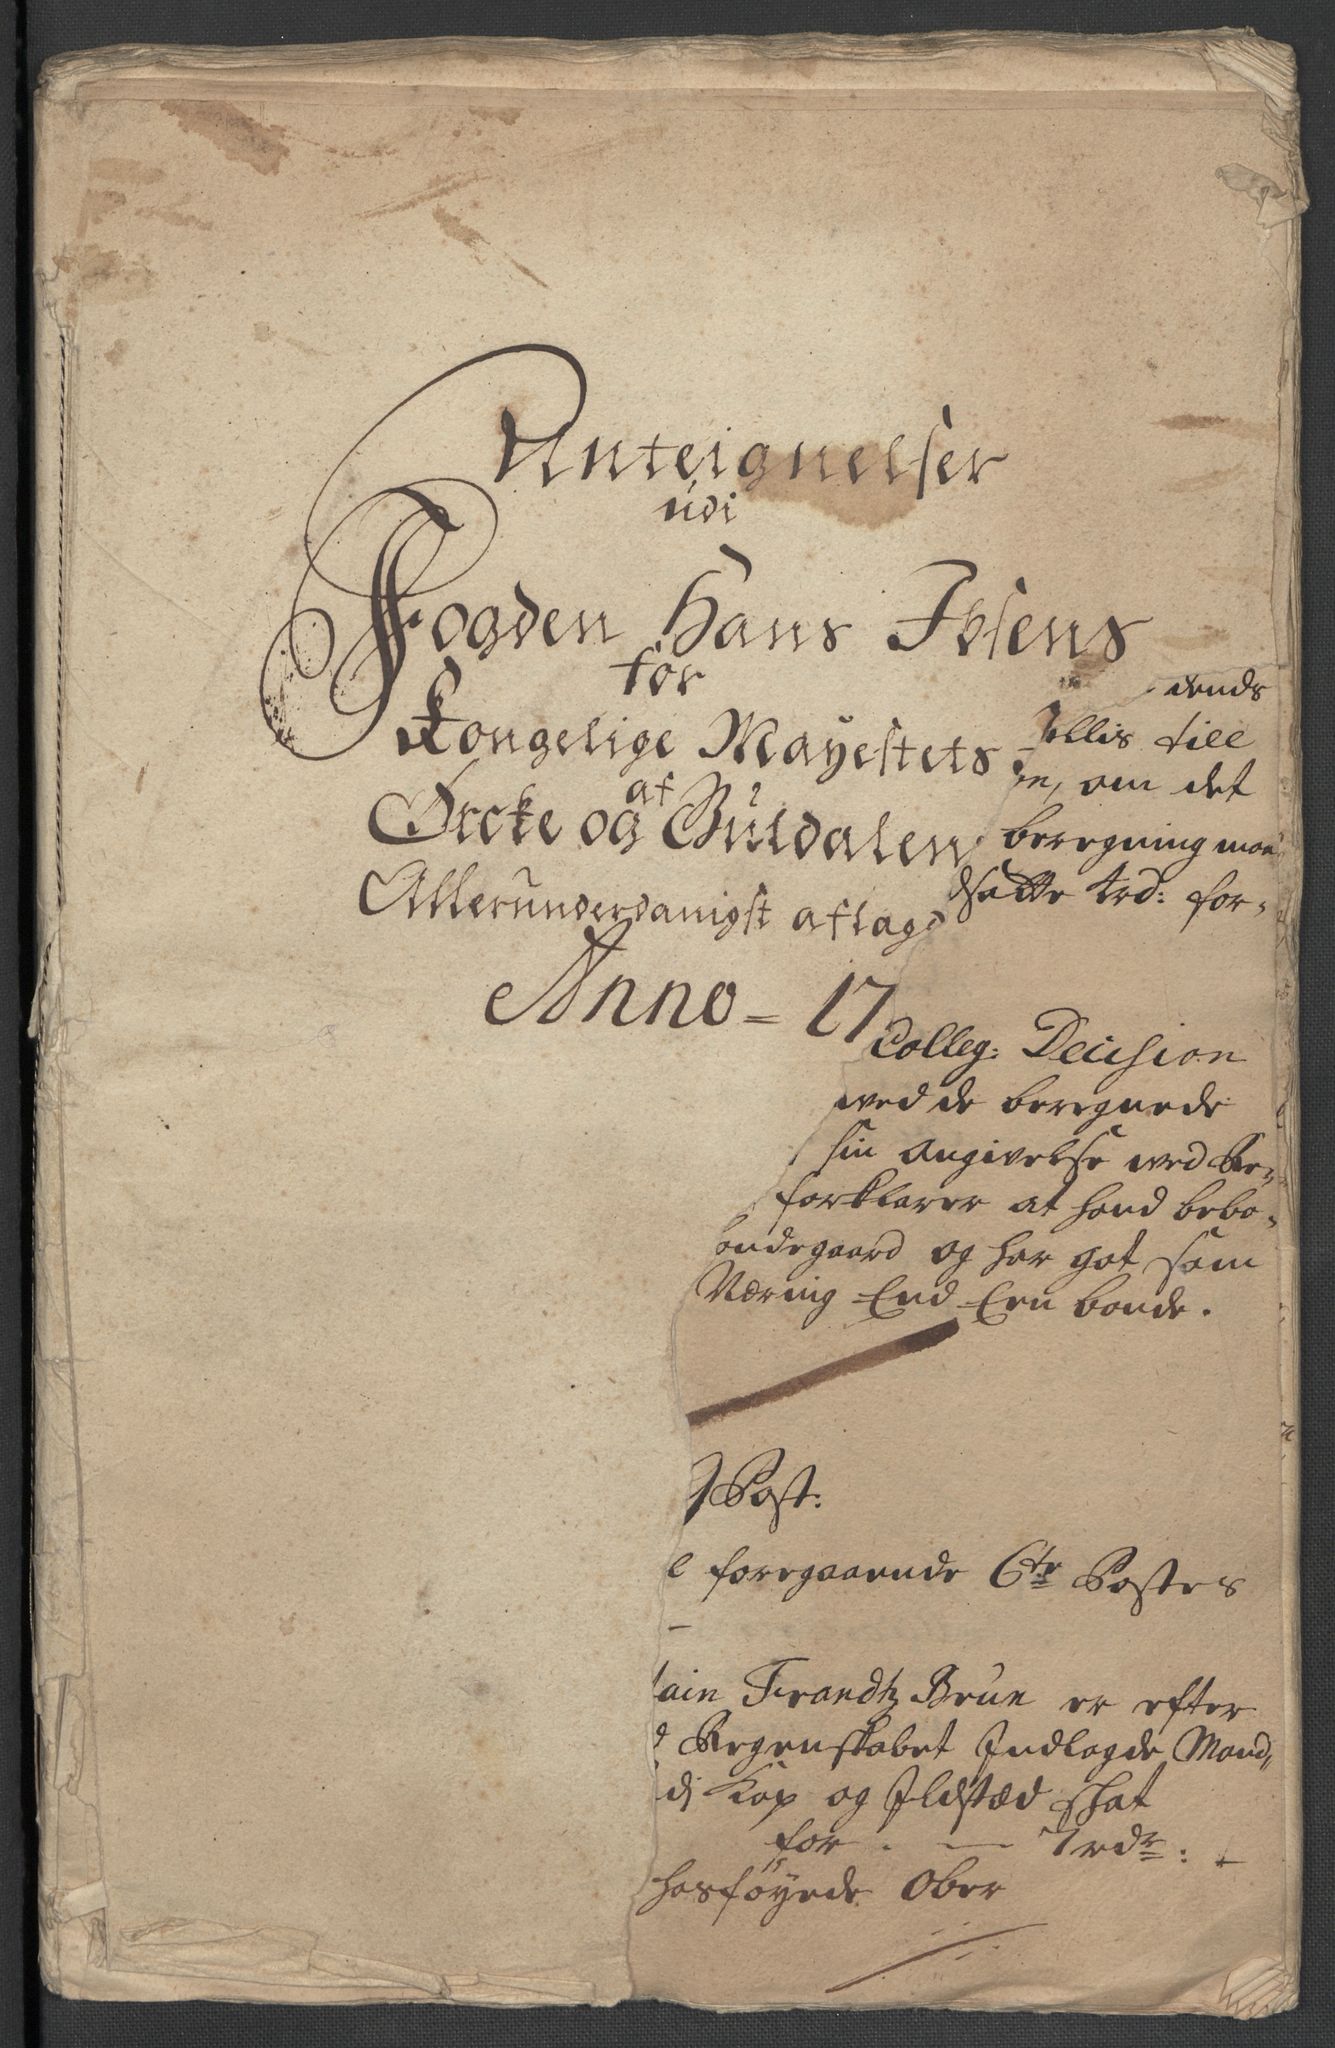 Anteignelser
udi
Fogden Hans Ibsens
for
Kongelige Mayestets
af
Orcke og Guldalen
Allerunderdanigst aflagd
Anno = 17
dends
till
om det
beregning
satte trd: for-
Colleg: Decision
ved de beregnede
sin angivelse ved Re-
forklarer at hand bebo-
ondegaard og har got som
Næring End Een bonde.
Post:
e foregaaende 6te Postes
tain Frandtz Brun er efter
Regenskabet Indlagde Mand-
di Kop og Ildstæd skat
for . — 7 rdr:
hosføyede Ober